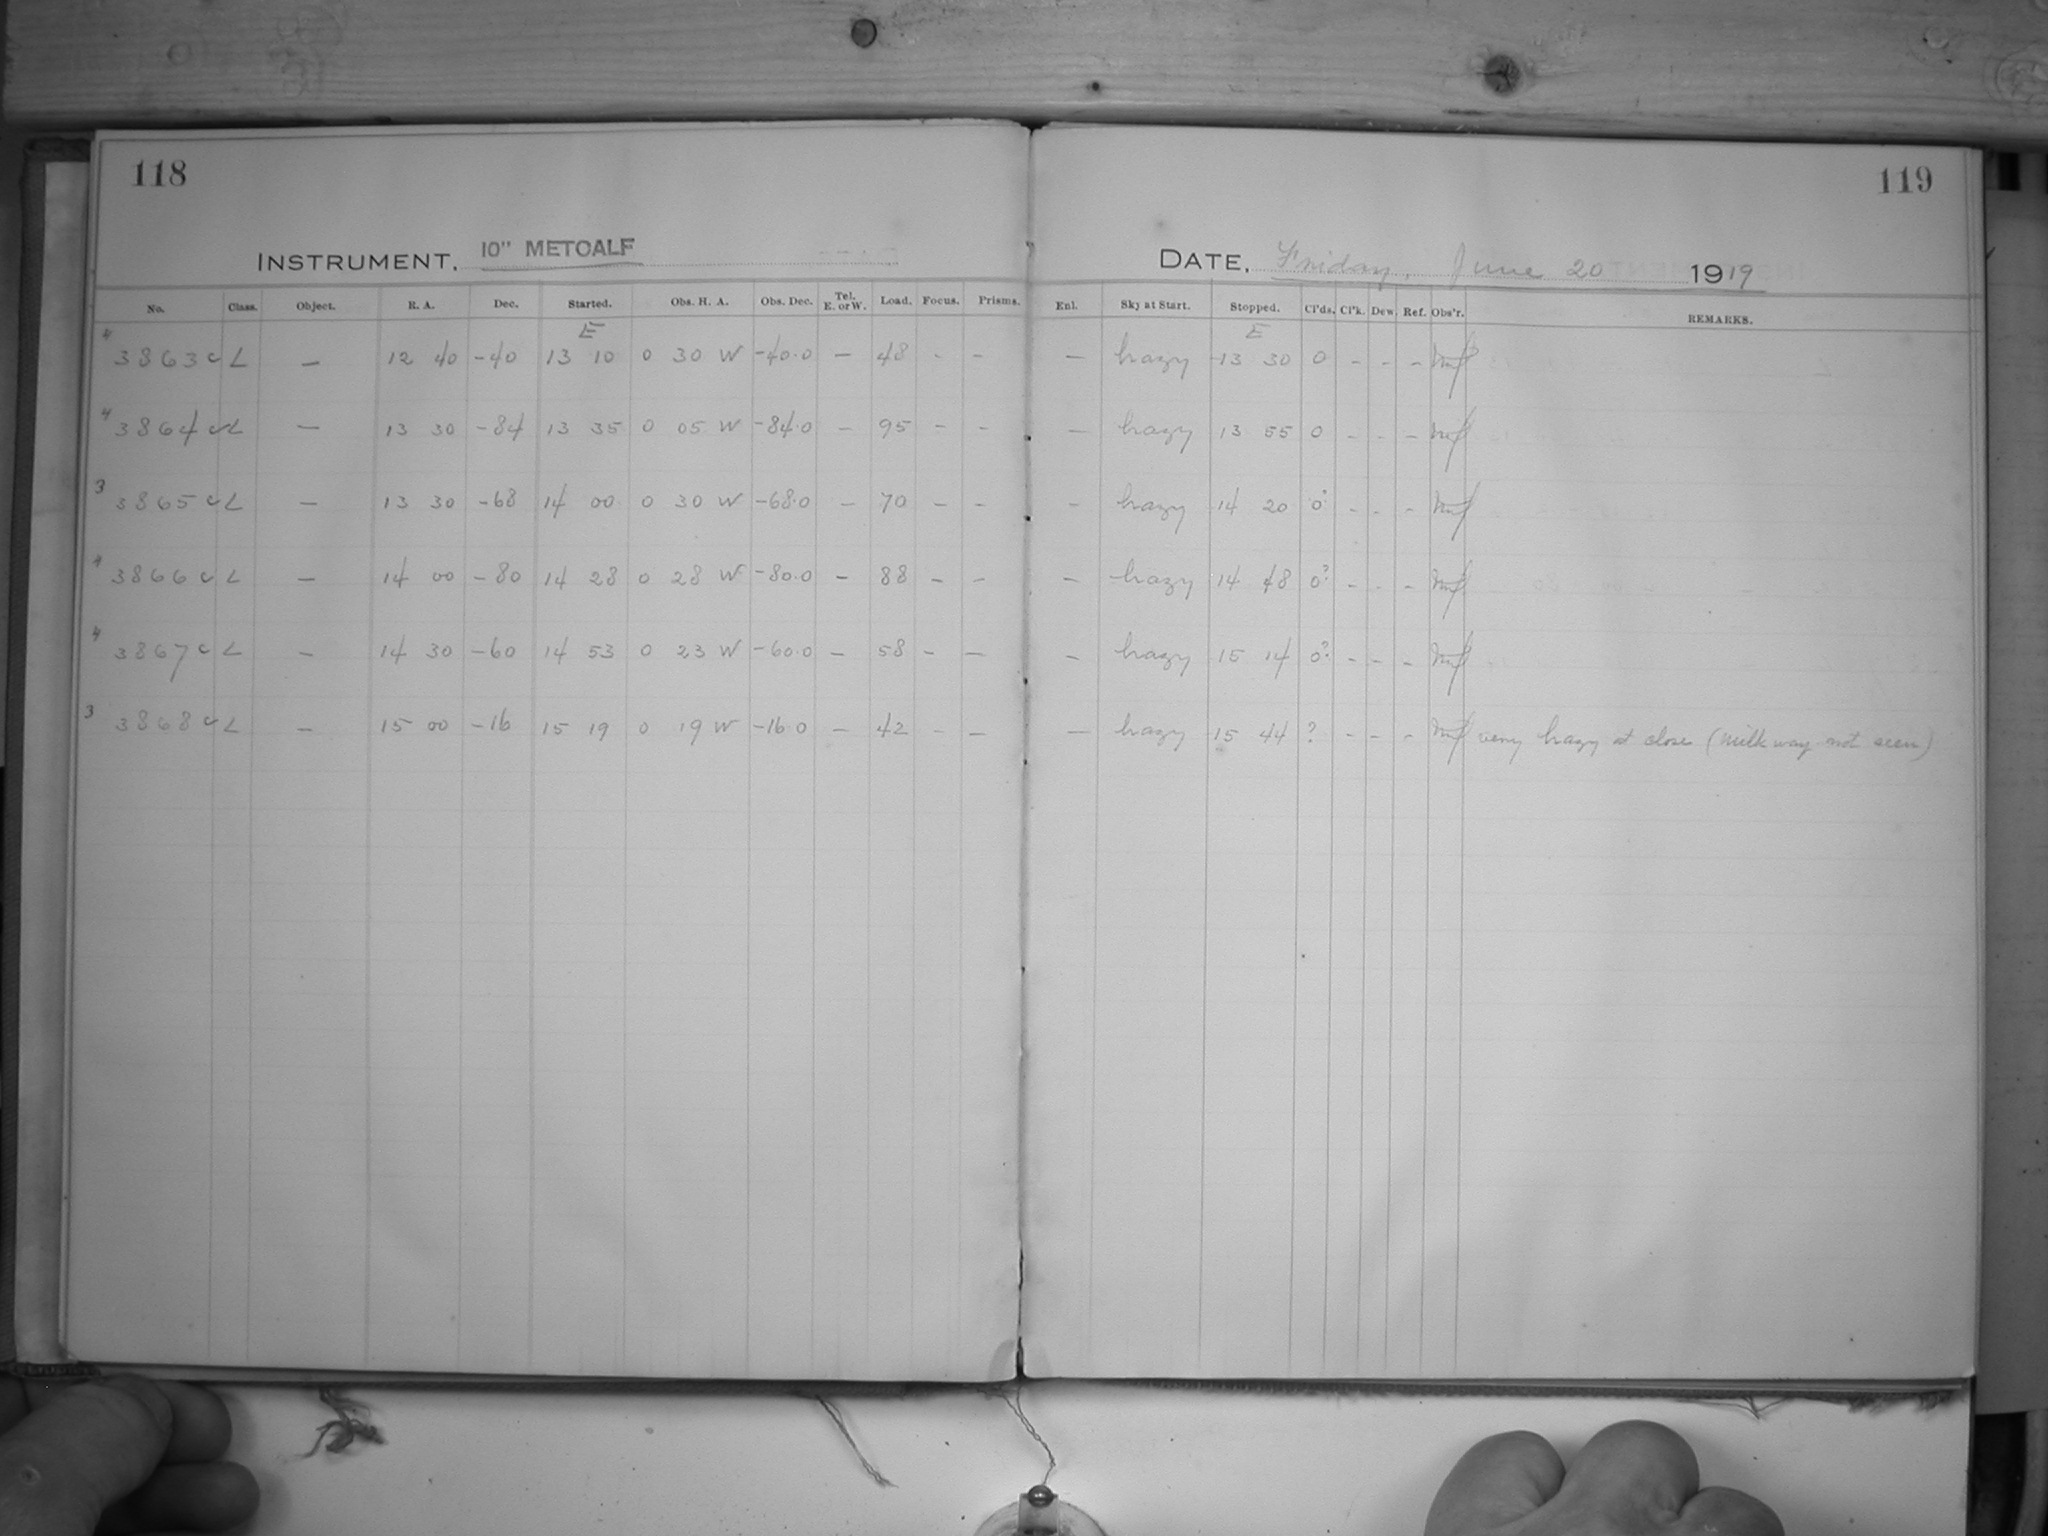 118
119
INSTRUMENT, 10" METCALF
DATE, Friday, June 20 1919
No. Class. Object. R. A. Dec. Started. Obs. H. A. Obs. Dec. Tel. E. or W. Load. Focus. Prisms. Enl. Sky at Start. Stopped. Cl'ds. Cl'k. Dew. Ref. Obs'r. REMARKS.
E E
4 3863 c L — 12 40 -40 13 10 0 30 W -40.0 — 48 - - — hazy 13 30 0 - - -
4 3864 c L — 13 30 -84 13 35 0 05 W -84.0 - 95 - - — hazy 13 55 0 - - -
3 3865 c L — 13 30 -68 14 00 0 30 W -68.0 - 70 - - - hazy 14 20 0? - - -
4 3866 c L — 14 00 -80 14 28 0 28 W -80.0 - 88 - - - hazy 14 48 0? - - -
4 3867 c L — 14 30 -60 14 53 0 23 W -60.0 - 58 - - - hazy 15 14 0? - - -
3 3868 c L — 15 00 -16 15 19 0 19 W -16 0 - 42 - - — hazy 15 44 ? - - - very hazy at close (milk way not seen)